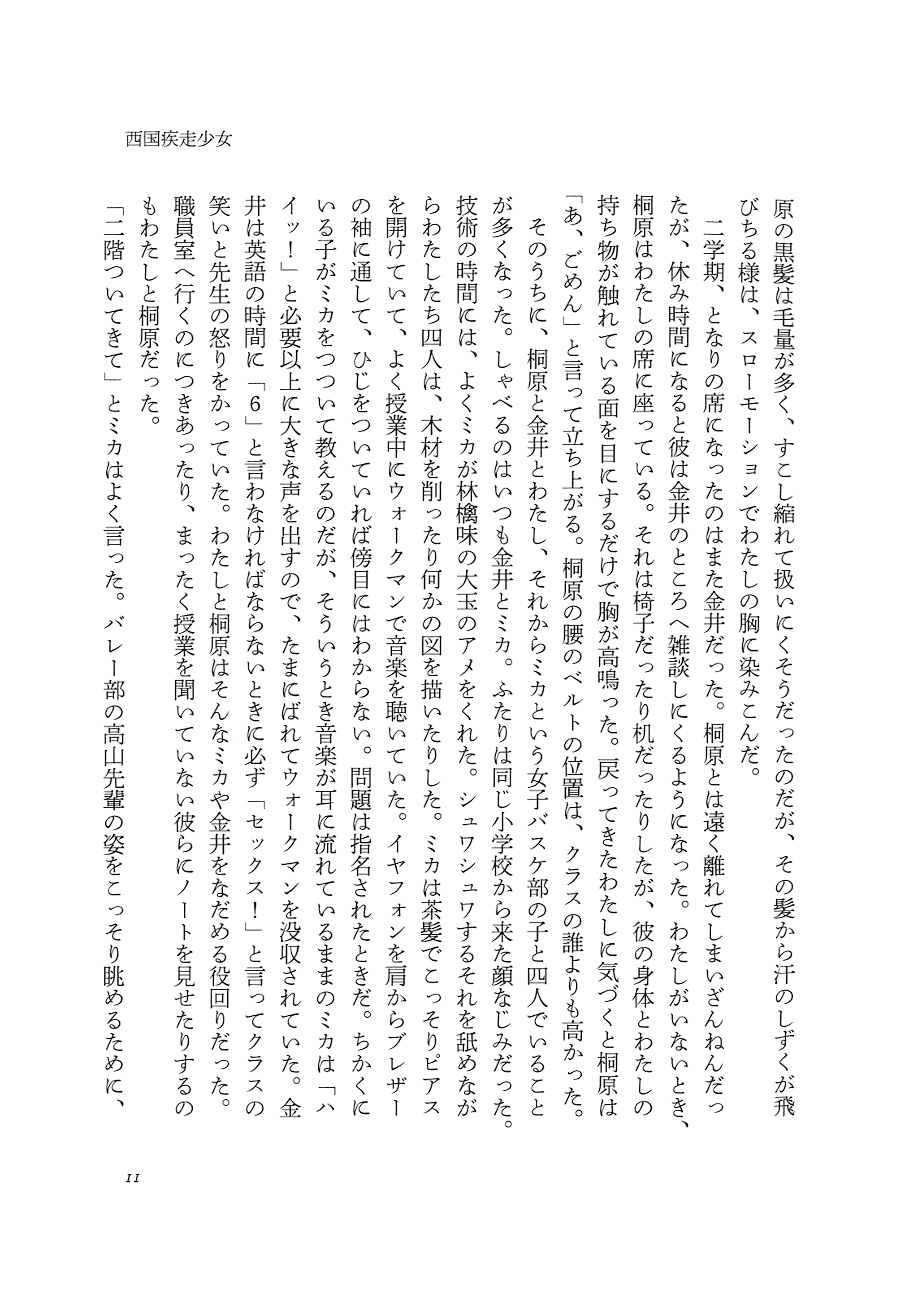 西国疾走少女
原の黒髪は毛量が多く、すこし縮れて扱いにくそうだったのだが、その髪から汗のしずくが飛
びちる様は、スローモーションでわたしの胸に染みこんだ。
二学期、となりの席になったのはまた金井だった。桐原とは遠く離れてしまいざんねんだっ
たが、休み時間になると彼は金井のところへ雑談しにくるようになった。わたしがいないとき、
桐原はわたしの席に座っている。それは椅子だったり机だったりしたが、彼の身体とわたしの
持ち物が触れている面を目にするだけで胸が高鳴った。戻ってきたわたしに気づくと桐原は
「あ、ごめん」と言って立ち上がる。桐原の腰のベルトの位置は、クラスの誰よりも高かった。
そのうちに、桐原と金井とわたし、それからミカという女子バスケ部の子と四人でいること
が多くなった。しゃべるのはいつも金井とミカ。ふたりは同じ小学校から来た顔なじみだった。
技術の時間には、よくミカが林檎味の大玉のアメをくれた。シュワシュワするそれを舐めなが
らわたしたち四人は、木材を削ったり何かの図を描いたりした。ミカは茶髪でこっそりピアス
を開けていて、よく授業中にウォークマンで音楽を聴いていた。イヤフォンを肩からブレザー
の袖に通して、ひじをついていれば傍目にはわからない。問題は指名されたときだ。ちかくに
いる子がミカをつついて教えるのだが、そういうとき音楽が耳に流れているままのミカは「ハ
イッ！」と必要以上に大きな声を出すので、たまにばれてウォークマンを没収されていた。金
井は英語の時間に「６」と言わなければならないときに必ず「セックス！」と言ってクラスの
笑いと先生の怒りをかっていた。わたしと桐原はそんなミカや金井をなだめる役回りだった。
職員室へ行くのにつきあったり、まったく授業を聞いていない彼らにノートを見せたりするの
もわたしと桐原だった。
「二階ついてきて」とミカはよく言った。バレー部の高山先輩の姿をこっそり眺めるために、
11